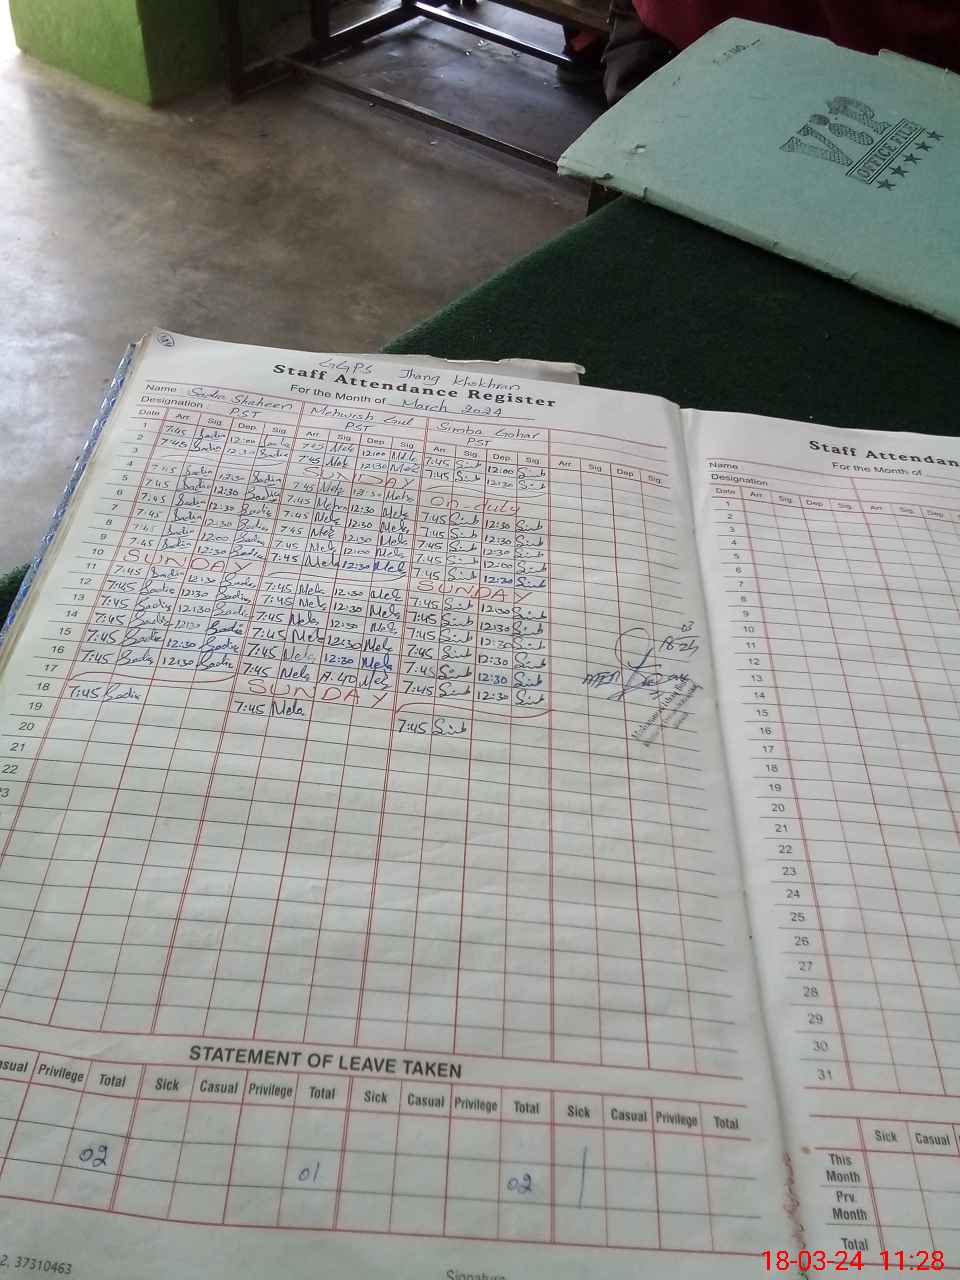 VIP
OFFICE FILE
GGPS Jhang Khokhran
Staff Attendance Register
For the Month of March 2024
Name Sadia Shaheen Mehwish Gul Simba Gohar
Designation PST PST PST
Date Arr. Sig. Dep. Sig Arr. Sig Dep. Sig Arr. Sig Dep. Sig. Arr. Sig Dep Sig.
1 7:45 Sadia 12:00 Sadia 7:45 Mele 12:00 Mele 7:45 Simb 12:00 Simb
2 7:45 Sadia 12:30 Sadia 7:45 Mele 12:30 Mele 7:45 Simb 12:30 Simb
3 SUNDAY
4 7:45 Sadia 12:30 Sadia 7:45 Mele 12:30 Mele On duty
5 7:45 Sadia 12:30 Sadia 7:45 Mele 12:30 Mele 7:45 Simb 12:30 Simb
6 7:45 Sadia 12:30 Sadia 7:45 Mele 12:30 Mele 7:45 Simb 12:30 Simb
7 7:45 Sadia 12:30 Sadia 7:45 Mele 12:30 Mele 7:45 Simb 12:30 Simb
8 7:45 Sadia 12:00 Sadia 7:45 Mele 12:00 Mele 7:45 Simb 12:00 Simb
9 7:45 Sadia 12:30 Sadia 7:45 Mele 12:30 Mele 7:45 Simb 12:30 Simb
10 SUNDAY SUNDAY
11 7:45 Sadia 12:30 Sadia 7:45 Mele 12:30 Mele 7:45 Simb 12:30 Simb
12 7:45 Sadia 12:30 Sadia 7:45 Mele 12:30 Mele 7:45 Simb 12:30 Simb
13 7:45 Sadia 12:30 Sadia 7:45 Mele 12:30 Mele 7:45 Simb 12:30 Simb
14 7:45 Sadia 12:30 Sadia 7:45 Mele 12:30 Mele 7:45 Simb 12:30 Simb
15 7:45 Sadia 12:30 Sadia 7:45 Mele 12:30 Mele 7:45 Simb 12:30 Simb
16 7:45 Sadia 12:30 Sadia 7:45 Mele Mele 7:45 Simb 12:30 Simb
17 SUNDAY
18 7:45 Sadia 7:45 Mele 7:45 Simb
19
20
21
22
23
STATEMENT OF LEAVE TAKEN
Casual Privilege Total Sick Casual Privilege Total Sick Casual Privilege Total Sick Casual Privilege Total
02 01 02
37310463
Signature
Staff Attendan
For the Month of
Name
Designation
Date Arr. Sig. Dep. Sig Arr. Sig. Dep
1
2
3
4
5
6
7
8
9
10
11
12
13
14
15
16
17
18
19
20
21
22
23
24
25
26
27
28
29
30
31
Sick Casual
This Month
Prv. Month
Total
18-03-24 11:28